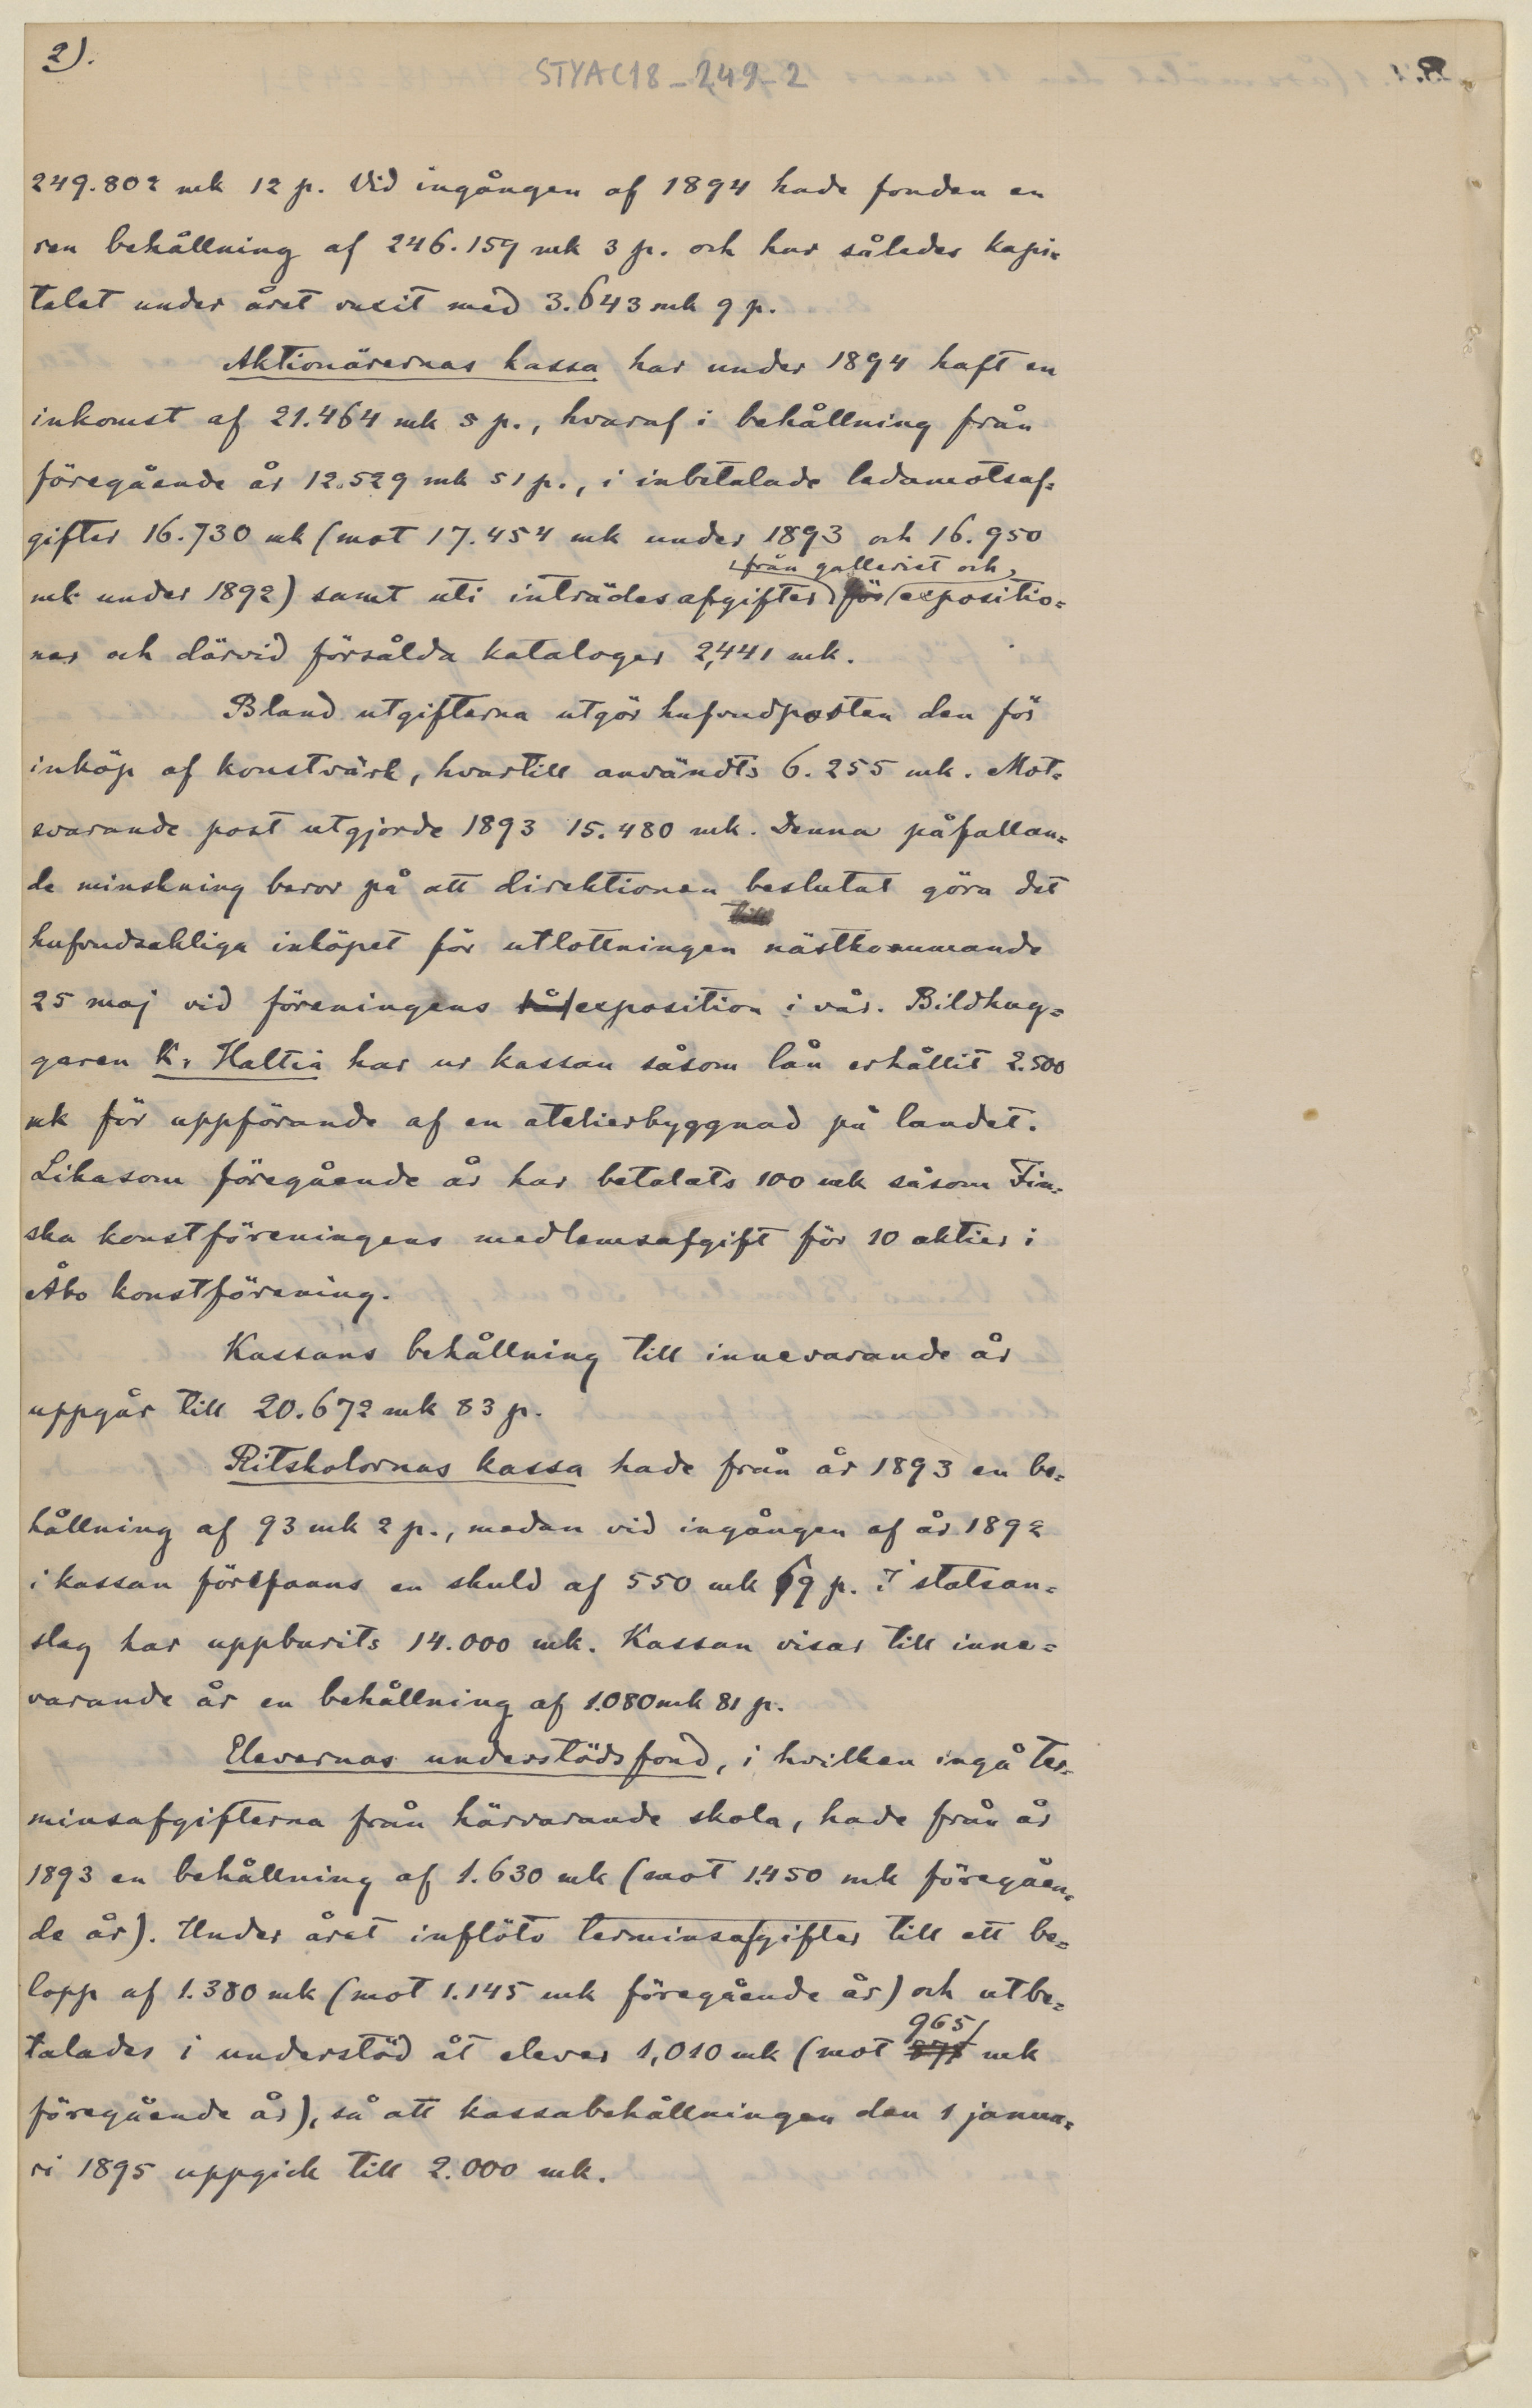 2).
STYAC18_249_2
249.802 mk 12 p. Vid ingången af 1894 hade fonden en
ren behållning af 246.159 mk 3 p. och har således kapi=
talet under året vuxit med 3.643 mk 9 p.
Aktionärernas kassa har under 1894 haft en
inkomst af 21.464 mk 5 p., hvaraf i behållning från
föregående år 12.529 mk 51 p., i inbetalade ledamotsaf=
gifter 16.730 mk (mot 17.454 mk under 1893 och 16.950
från galleriet och
mk under 1892) samt uti inträdesafgifter för expositio=
ner och därvid försålda kataloger 2,441 mk.
Bland utgifterna utgör hufvudposten den för
inköp af konstvärk, hvartill användts 6.255 mk. Mot=
svarande post utgjorde 1893 15.480 mk. Denna påfallan=
de minskning beror på att direktionen beslutat göra det
till
hufvudsakliga inköpet för utlottningen nästkommande
25 maj vid föreningens exposition i vår. Bildhug=
garen K. Haltia har ur kassan såsom lån erhållit 2.500
mk för uppförande af en atelierbyggnad på landet.
Likasom föregående år har betalats 100 mk såsom Fin=
ska konstföreningens medlemsafgift för 10 aktier i
Åbo konstförening.
Kassans behållning till innevarande år
uppgår till 20.672 mk 83 p.
Ritskolornas kassa hade från år 1893 en be=
hållning af 93 mk 2 p., medan vid ingången af år 1892
i kassan förefanns en skuld af 550 mk 69 p. I statsan=
slag har uppburits 14.000 mk. Kassan visar till inne=
varande år en behållning af 1.080 mk 81 p.
Elevernas understödsfond, i hvilken ingå ter=
minsafgifterna från härvarande skola, hade från år
1893 en behållning af 1.630 mk (mot 1.450 mk föregåen=
de år). Under året inflöto terminsafgifter till ett be=
lopp af 1.380 mk (mot 1.145 mk föregående år) och utbe=
965
talades i understöd åt elever 1,010 mk (mot mk
föregående år), så att kassabehållningen den 1 janua=
ri 1895 uppgick till 2.000 mk.